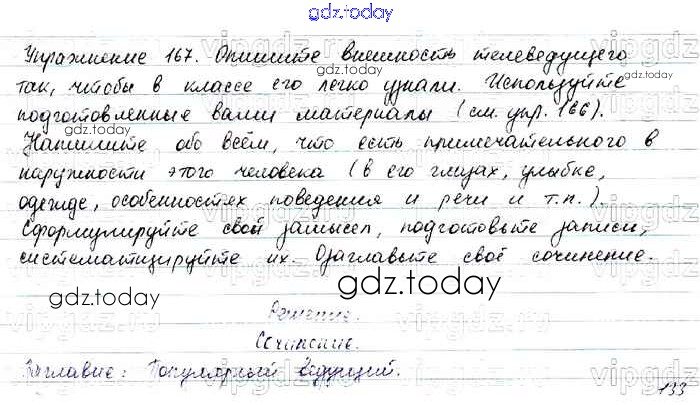 gdz.today
Упражнение 167. Опишите внешность телеведущего
так, чтобы в классе его легко узнали. Используйте
подготовленные вами материалы (см. упр. 166).
Напишите обо всём, что есть примечательного в
наружности этого человека (в его глазах, улыбке,
одежде, особенностях поведения и речи и т.п.).
Сформулируйте свой замысел, подготовьте записи,
систематизируйте их. Озаглавьте своё сочинение.
gdz.today
gdz.today
Решение.
Сочинение.
Заглавие: Популярный ведущий.
133